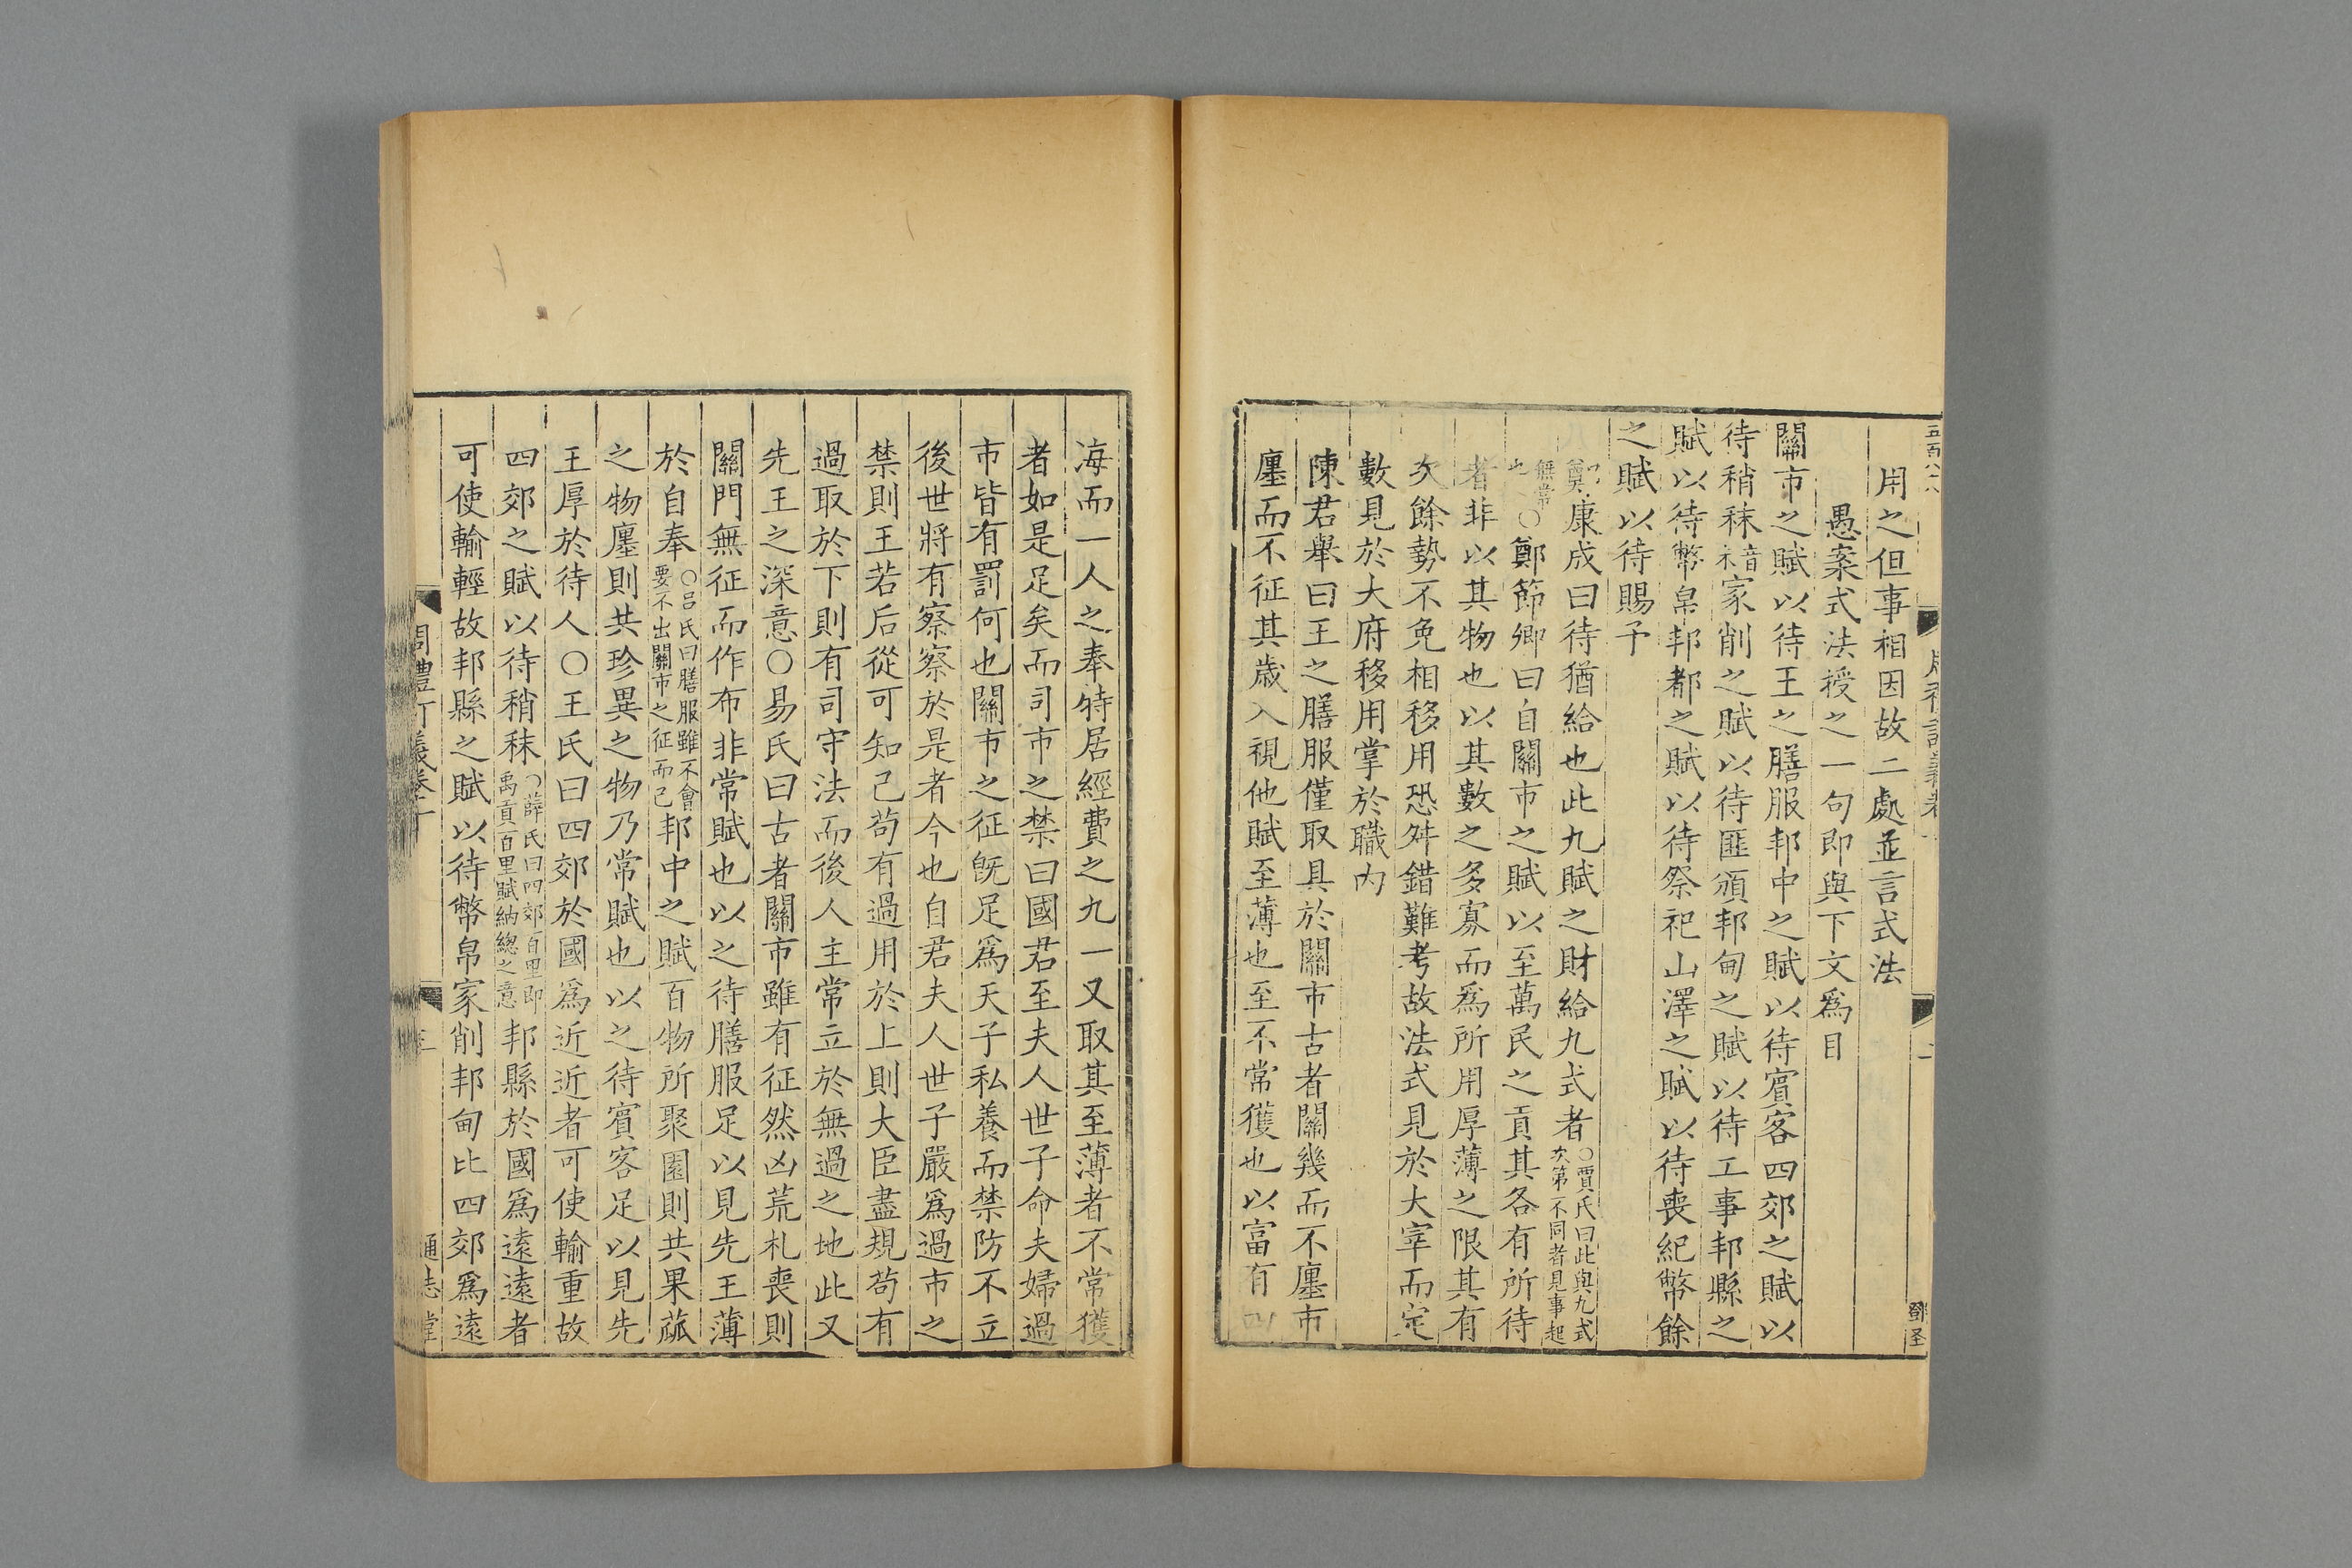 用之但事相因故二處並言式法
愚案式法授之一句即與下文爲目
關市之賦以待王之膳服邦中之賦以待賓客四郊之賦以
待稍秣音末家削之賦以待匪頒邦甸之賦以待工事邦縣之
賦以待幣帛邦都之賦以待祭祀山澤之賦以待喪紀幣餘
之賦以待賜予
鄭康成曰待猶給也此九賦之財給九式者○賈氏曰此與九式次第不同者見事起
無常也○鄭節卿曰自關市之賦以至萬民之貢其各有所待
者非以其物也以其數之多寡而爲所用厚薄之限其有
次餘勢不免相移用恐舛錯難考故法式見於大宰而定
數見於大府移用掌於職內
陳君舉曰王之膳服僅取具於關市古者關幾而不廛市
廛而不征其歲入視他賦至薄也至不常獲也以富有四
海而一人之奉特居經費之九一又取其至薄者不常獲
者如是足矣而司市之禁曰國君至夫人世子命夫婦過
市皆有罰何也關市之征旣足爲天子私養而禁防不立
後世將有察察於是者今也自君夫人世子嚴爲過市之
禁則王若后從可知己苟有過用於上則大臣盡規苟有
過取於下則有司守法而後人主常立於無過之地此又
先王之深意○易氏曰古者關市雖有征然凶荒札喪則
關門無征而作布非常賦也以之待膳服足以見先王薄
於自奉○呂氏曰膳服雖不會要不出關市之征而己邦中之賦百物所聚園則共果蓏
之物廛則共珍異之物乃常賦也以之待賓客足以見先
王厚於待人○王氏曰四郊於國爲近近者可使輸重故
四郊之賦以待稍秣○薛氏曰四郊百里即禹貢百里賦納總之意邦縣於國爲遠遠者
可使輸輕故邦縣之賦以待幣帛家削邦甸比四郊爲遠
通志堂